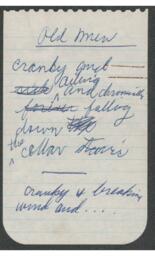 Old Men
cranky and
ailing and chronically
falling
down
the cellar stairs
cranky & breaking
wind and....